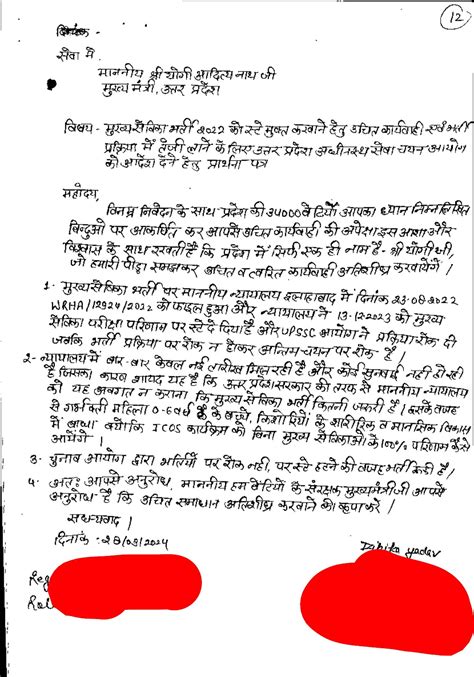 12
दिनांक -
सेवा में
माननीय श्री योगी आदित्य नाथ जी
मुख्य मंत्री, उत्तर प्रदेश
विषय - मुख्य सेविका भर्ती 2022 को स्टे मुक्त करवाने हेतु उचित कार्यवाही एवं भर्ती
प्रक्रिया में तेजी लाने के लिए उत्तर प्रदेश अधीनस्थ सेवा चयन आयोग
को आदेश देने हेतु प्रार्थना पत्र
महोदय,
विनम्र निवेदन के साथ प्रदेश की बेटियाँ आपका ध्यान निम्नलिखित
बिन्दुओं पर आकर्षित कर आपसे उचित कार्यवाही की अपेक्षा इस आशा और
विश्वास के साथ रखती हैं कि प्रदेश में सिर्फ एक ही नाम है - श्री योगी जी,
जो हमारी पीड़ा समझकर उचित व त्वरित कार्यवाही अतिशीघ्र करवायेंगे।
1- मुख्य सेविका भर्ती पर माननीय न्यायालय इलाहाबाद में दिनांक 23-08-2022
को दाखिल हुआ और न्यायालय ने 13-12-2023 को मुख्य
सेविका परीक्षा परिणाम पर स्टे दे दिया है और UPSSC आयोग ने प्रक्रिया रोक दी
जबकि भर्ती प्रक्रिया पर रोक न होकर अन्तिम चयन पर रोक है।
2- न्यायालय में बार-बार केवल नई तारीख मिल रही है और कोई सुनवाई नहीं हो रही
है जिसका कारण शायद यह है कि उत्तर प्रदेश सरकार की तरफ से माननीय न्यायालय
को यह अवगत न कराना कि मुख्य सेविका भर्ती कितनी जरूरी है। इसके वजह
से गर्भवती महिला 0-6 वर्ष के बच्चे, किशोरियों के शारीरिक व मानसिक विकास
में बाधा क्योंकि ICDS कार्यक्रम को बिना मुख्य सेविकाओं के 100% परिणाम कैसे
आयेंगे।
3- चुनाव आयोग द्वारा भर्तियों पर रोक नहीं, पर स्टे की वजह भर्ती है।
4- अतः आपसे अनुरोध, माननीय हम बेटियों के संरक्षक मुख्यमंत्री जी आपसे
अनुरोध है कि उचित समाधान अतिशीघ्र करवाने की कृपा करें।
सधन्यवाद।
दिनांक - 28/03/2024
yadav
Reg
Rol